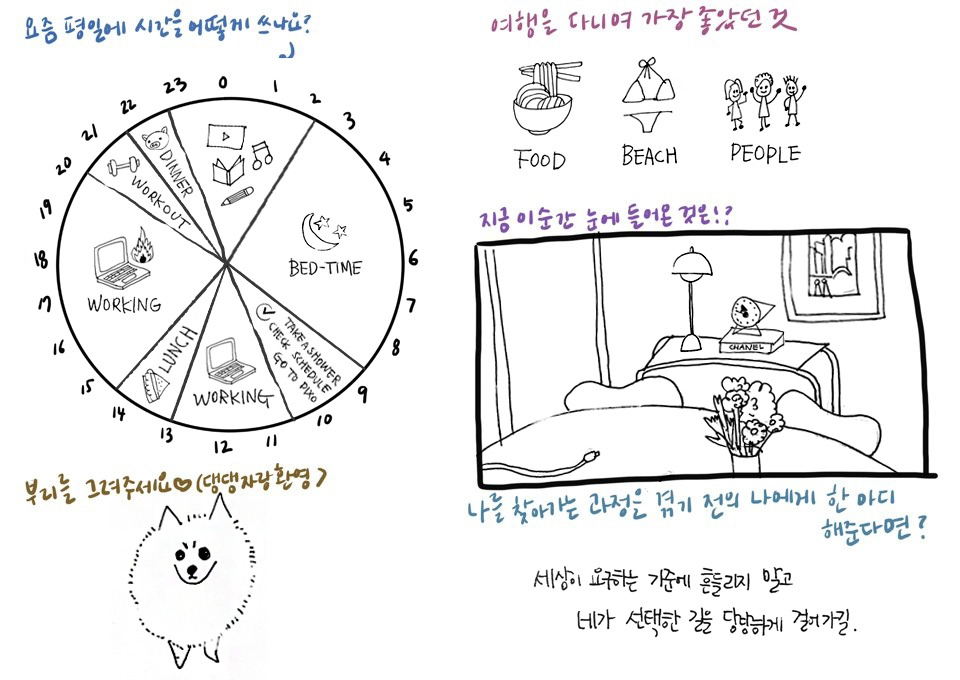 요즘 평일에 시간을 어떻게 쓰나요?
0
1
2
3
4
5
6
7
8
9
10
11
12
13
14
15
16
17
18
19
20
21
22
23
BED-TIME
TAKE A SHOWER
CHECK SCHEDULE
GO TO DXO
WORKING
LUNCH
WORKING
WORKOUT
DINNER
부리를 그려주세요♡(댕댕자랑환영)
여행을 다니며 가장 좋았던 것
FOOD
BEACH
PEOPLE
지금 이 순간 눈에 들어온 것은!?
CHANEL
나를 찾아가는 과정을 겪기 전의 나에게 한 마디
해준다면?
세상이 요구하는 기준에 흔들리지 말고
네가 선택한 길을 당당하게 걸어가길.